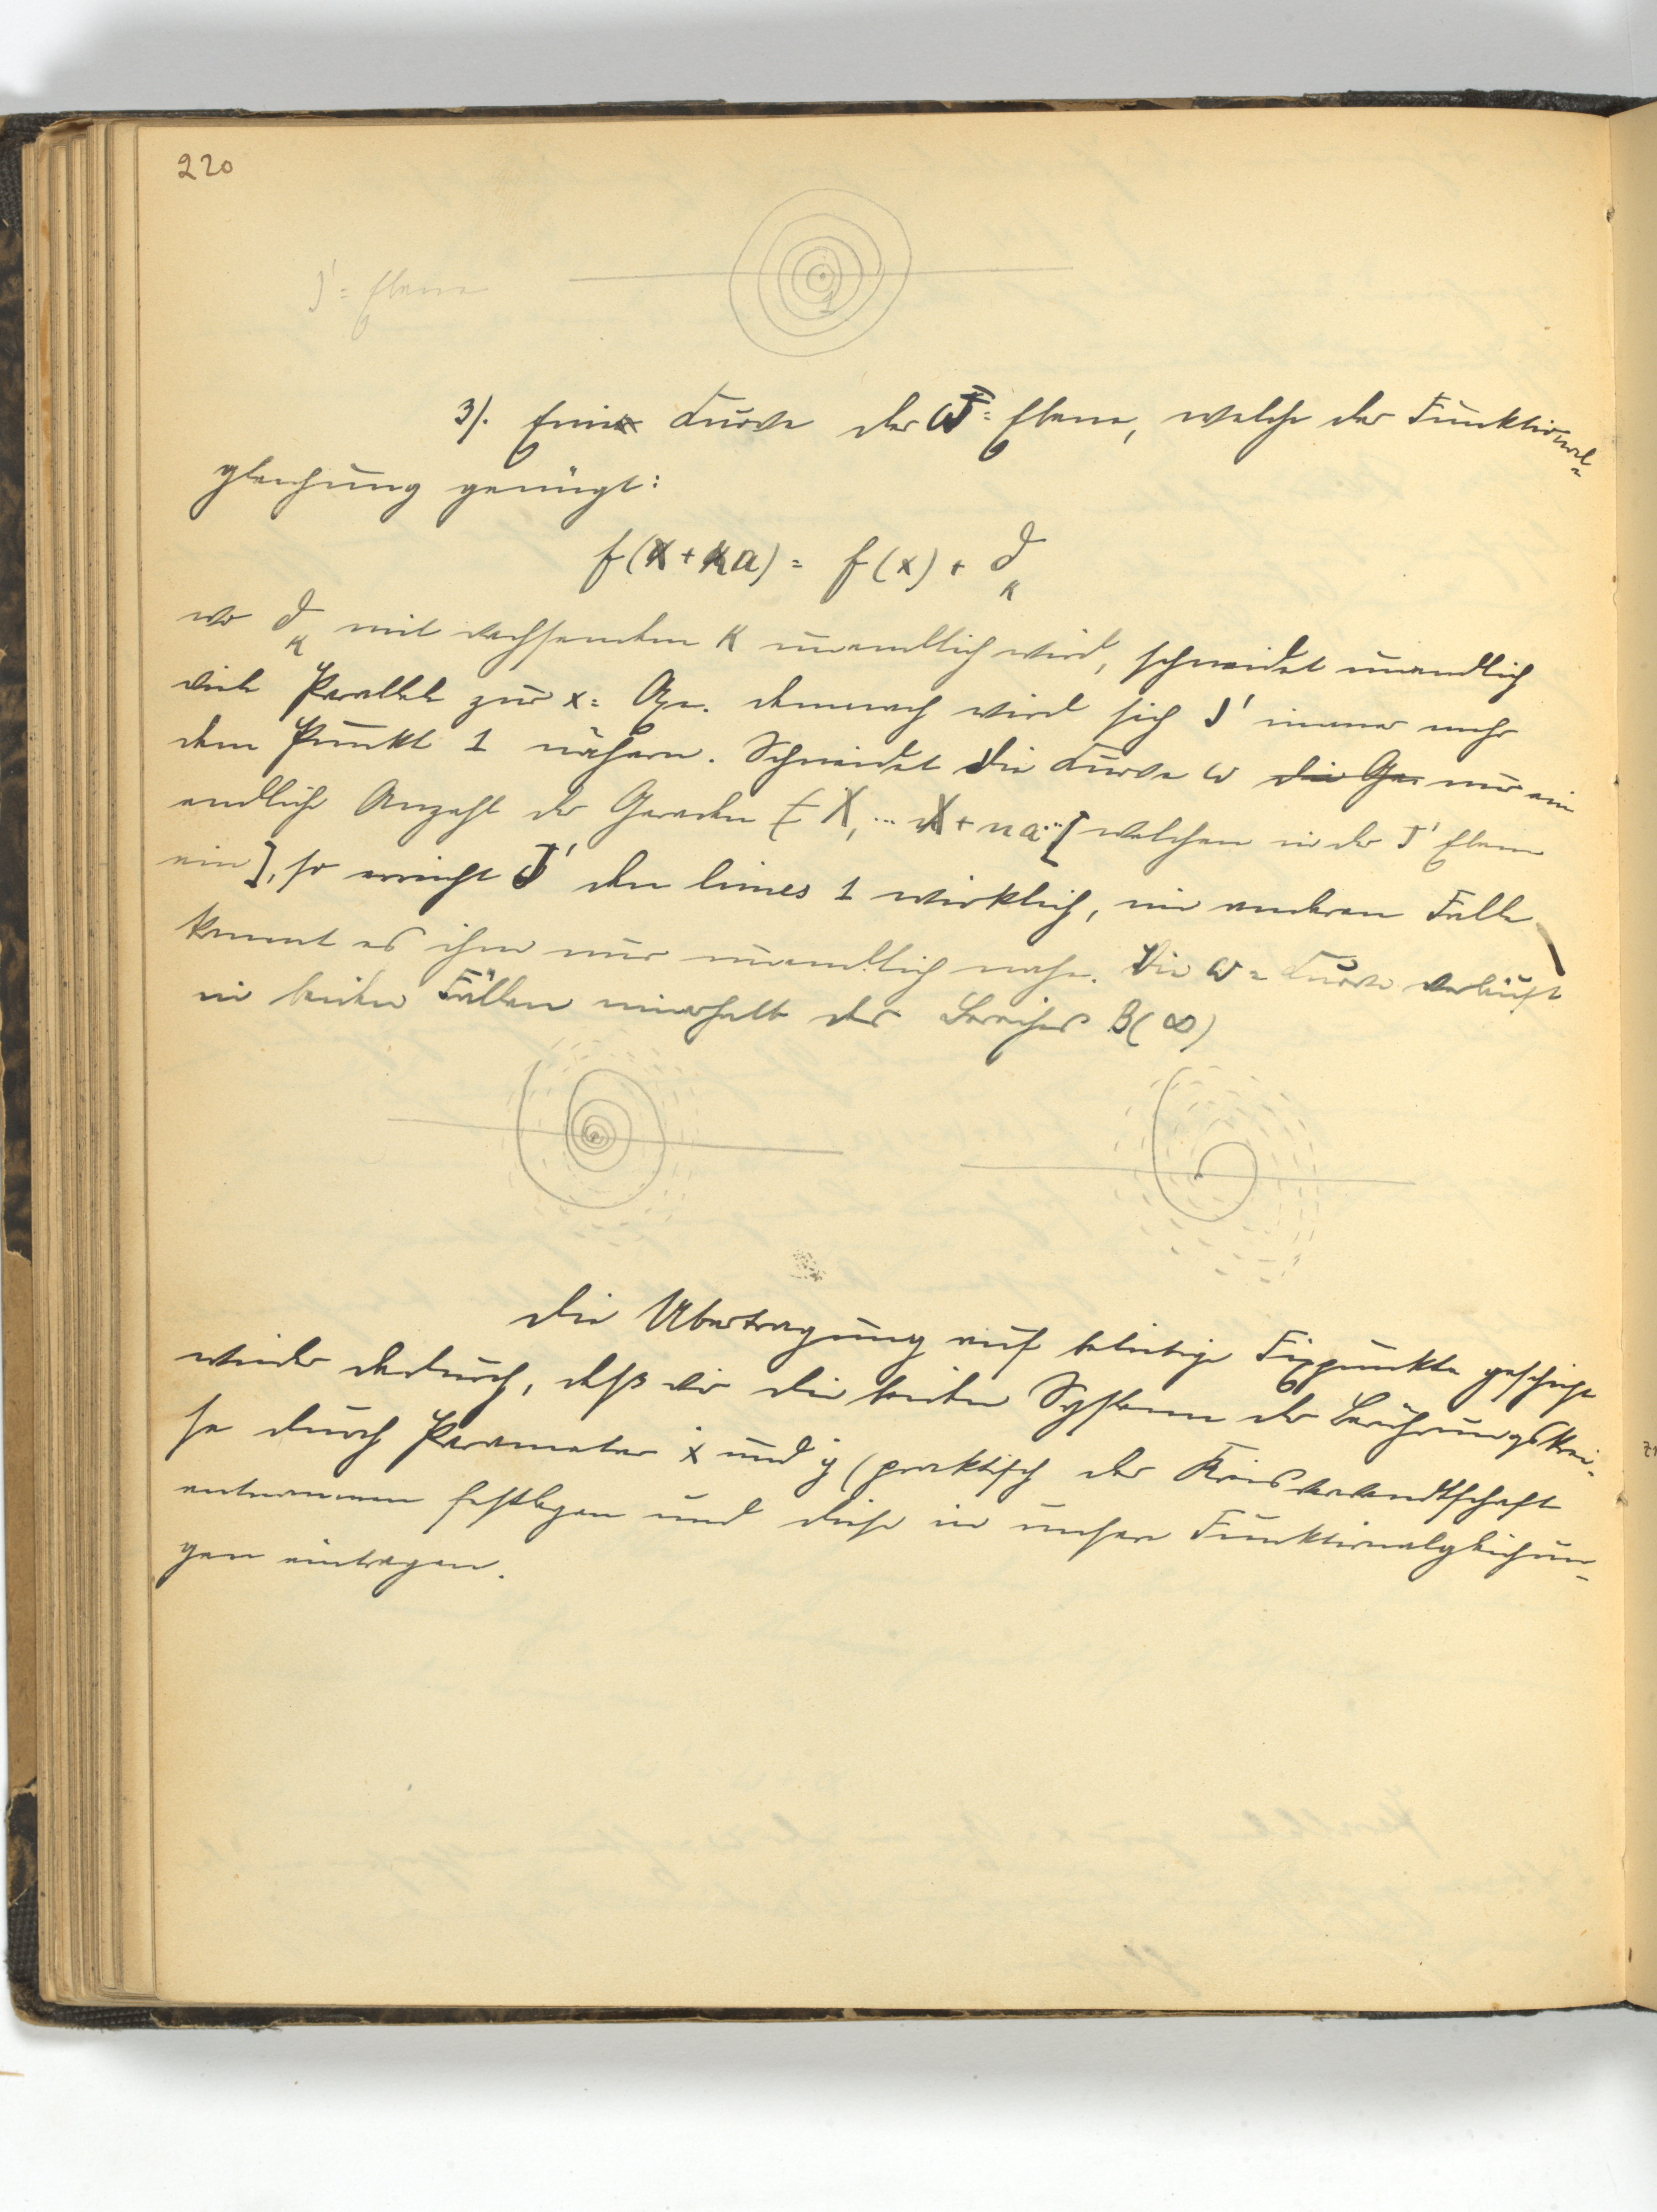 220
J' = Ebene
1
3). Eine Kurve der W = Ebene, welche der Funktional=
gleichung genügt:
f(x+κa) = f(x) + δκ
wo δκ mit wachsendem κ unendlich wird, schneidet unendlich
viele Parallele zur x = Axe. demnach wird sich J' immer mehr
dem Punkt 1 nähern. Schneidet die Kurve w die Ger nur ein
endliche Anzahl der Geraden X, ... X + na.. [welchen in der J' Ebene
ein], so erreicht J' den limes 1 wirklich, im anderen Falle
kommt es ihm nur unendlich nahe. Die w = Kurve verläuft
in beiden Fällen innerhalb des Bereiches B(∞)
Die Übertragung auf beliebige Fixpunkte geschieht
wieder dadurch, daß wir die beiden Systeme der Berührungskrei-
se durch Parameter ẋ und ẏ (praktisch der Kreisverwandtschaft
entnommen festlegen und diese in unsere Funktionalgleichun-
gen eintragen.